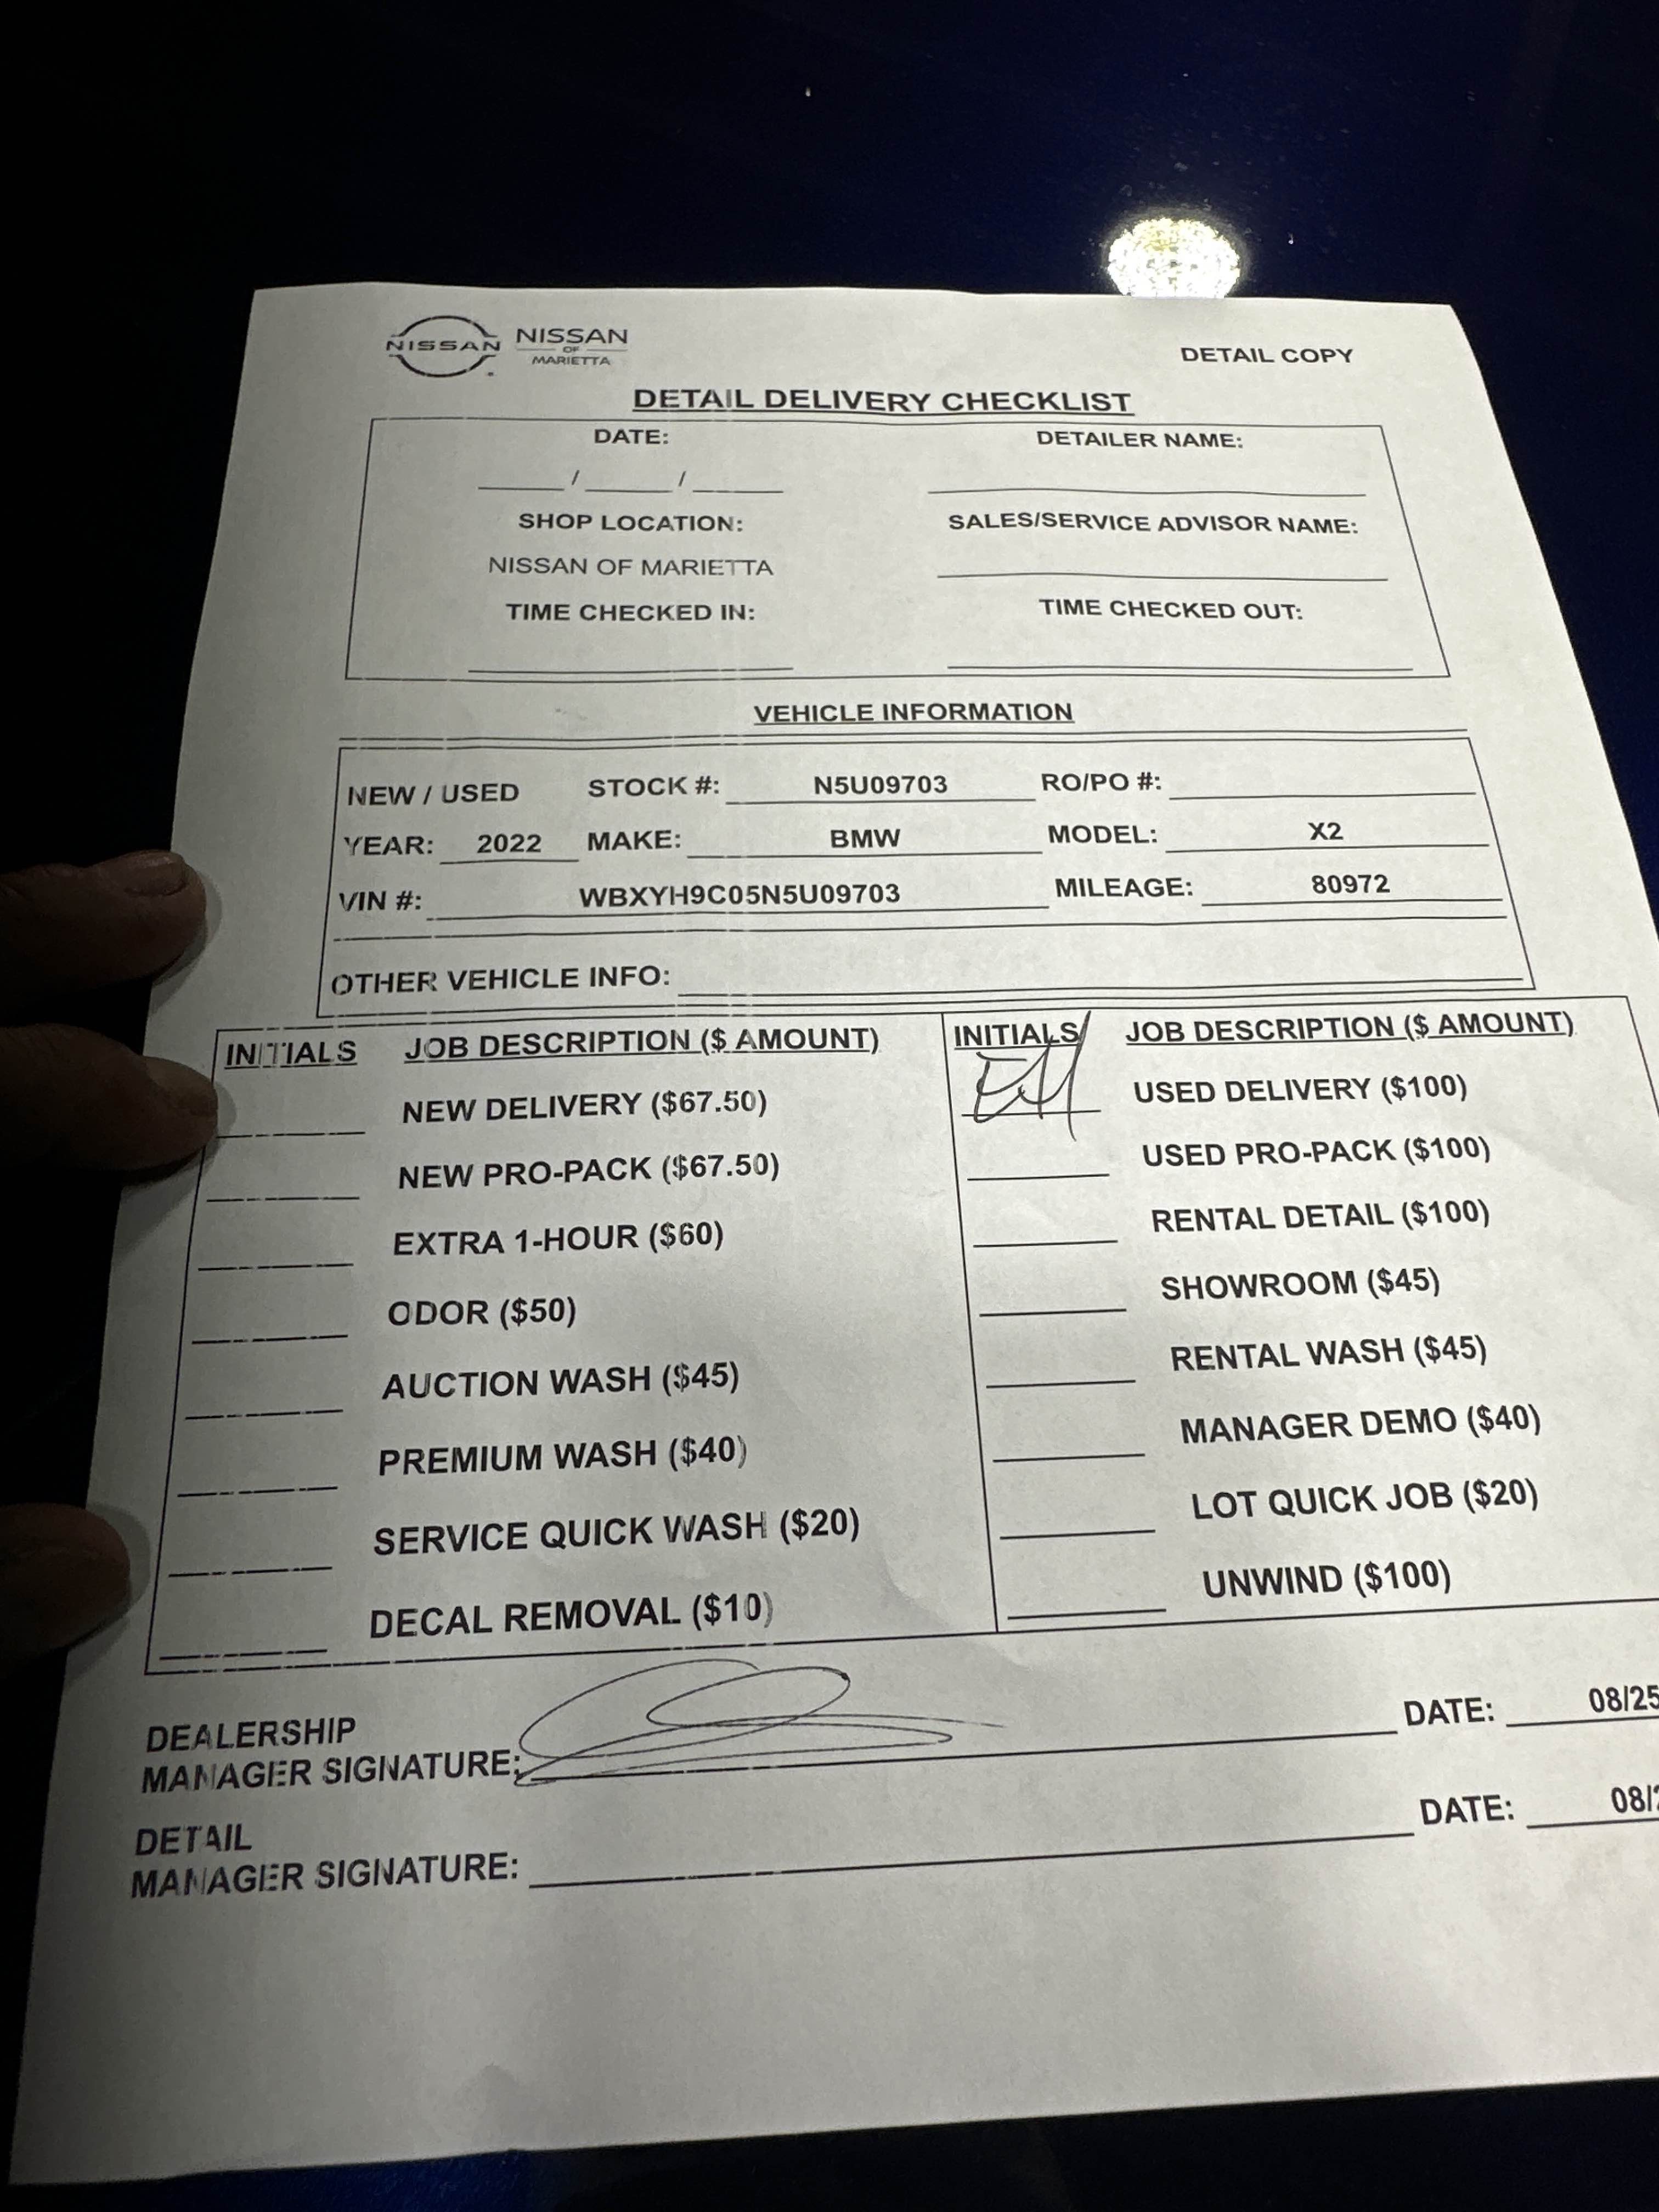 NISSAN NISSAN
OF
MARIETTA
DETAIL COPY
DETAIL DELIVERY CHECKLIST
DATE: DETAILER NAME:
/ /
SHOP LOCATION: SALES/SERVICE ADVISOR NAME:
NISSAN OF MARIETTA
TIME CHECKED IN: TIME CHECKED OUT:
VEHICLE INFORMATION
NEW / USED STOCK #: N5U09703 RO/PO #:
YEAR: 2022 MAKE: BMW MODEL: X2
VIN #: WBXYH9C05N5U09703 MILEAGE: 80972
OTHER VEHICLE INFO:
INITIALS JOB DESCRIPTION ($ AMOUNT) INITIALS JOB DESCRIPTION ($ AMOUNT)
NEW DELIVERY ($67.50) USED DELIVERY ($100)
NEW PRO-PACK ($67.50) USED PRO-PACK ($100)
EXTRA 1-HOUR ($60) RENTAL DETAIL ($100)
ODOR ($50) SHOWROOM ($45)
AUCTION WASH ($45) RENTAL WASH ($45)
PREMIUM WASH ($40) MANAGER DEMO ($40)
SERVICE QUICK WASH ($20) LOT QUICK JOB ($20)
DECAL REMOVAL ($10) UNWIND ($100)
DEALERSHIP
MANAGER SIGNATURE: DATE: 08/25
DETAIL
MANAGER SIGNATURE: DATE: 08/